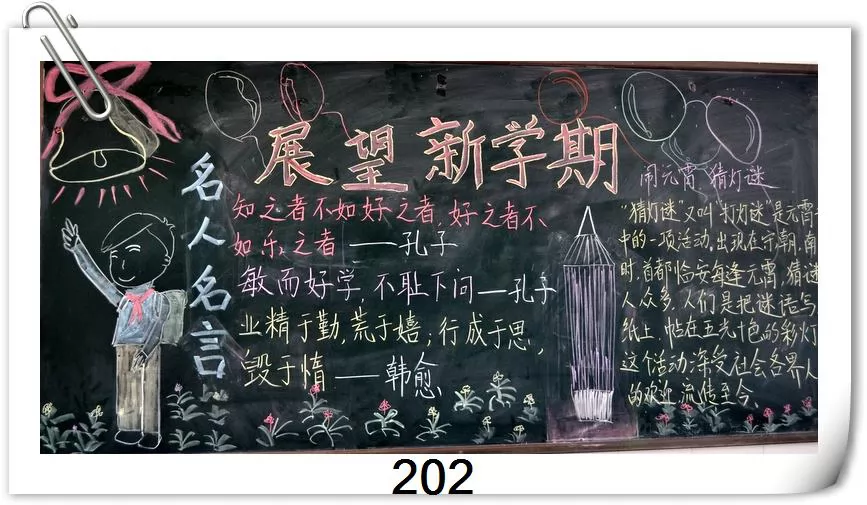 展望新学期
名人名言
知之者不如好之者,好之者不
如乐之者——孔子
敏而好学,不耻下问——孔子
业精于勤,荒于嬉;行成于思,
毁于惰——韩愈
闹元宵、猜灯谜
"猜灯谜"又叫"打灯谜"是元宵
中的一项活动,出现在宋朝.南
时,首都临安每逢元宵,猜谜
人众多,人们是把谜语写
纸上,帖在五光十色的彩灯
这个活动深受社会各界人
的欢迎,流传至今、
202